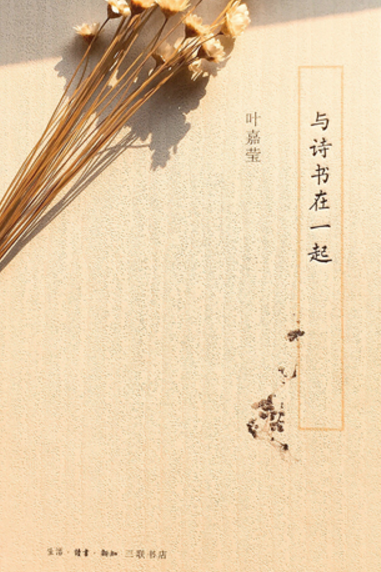 与诗书在一起
叶嘉莹
生活·读书·新知 三联书店